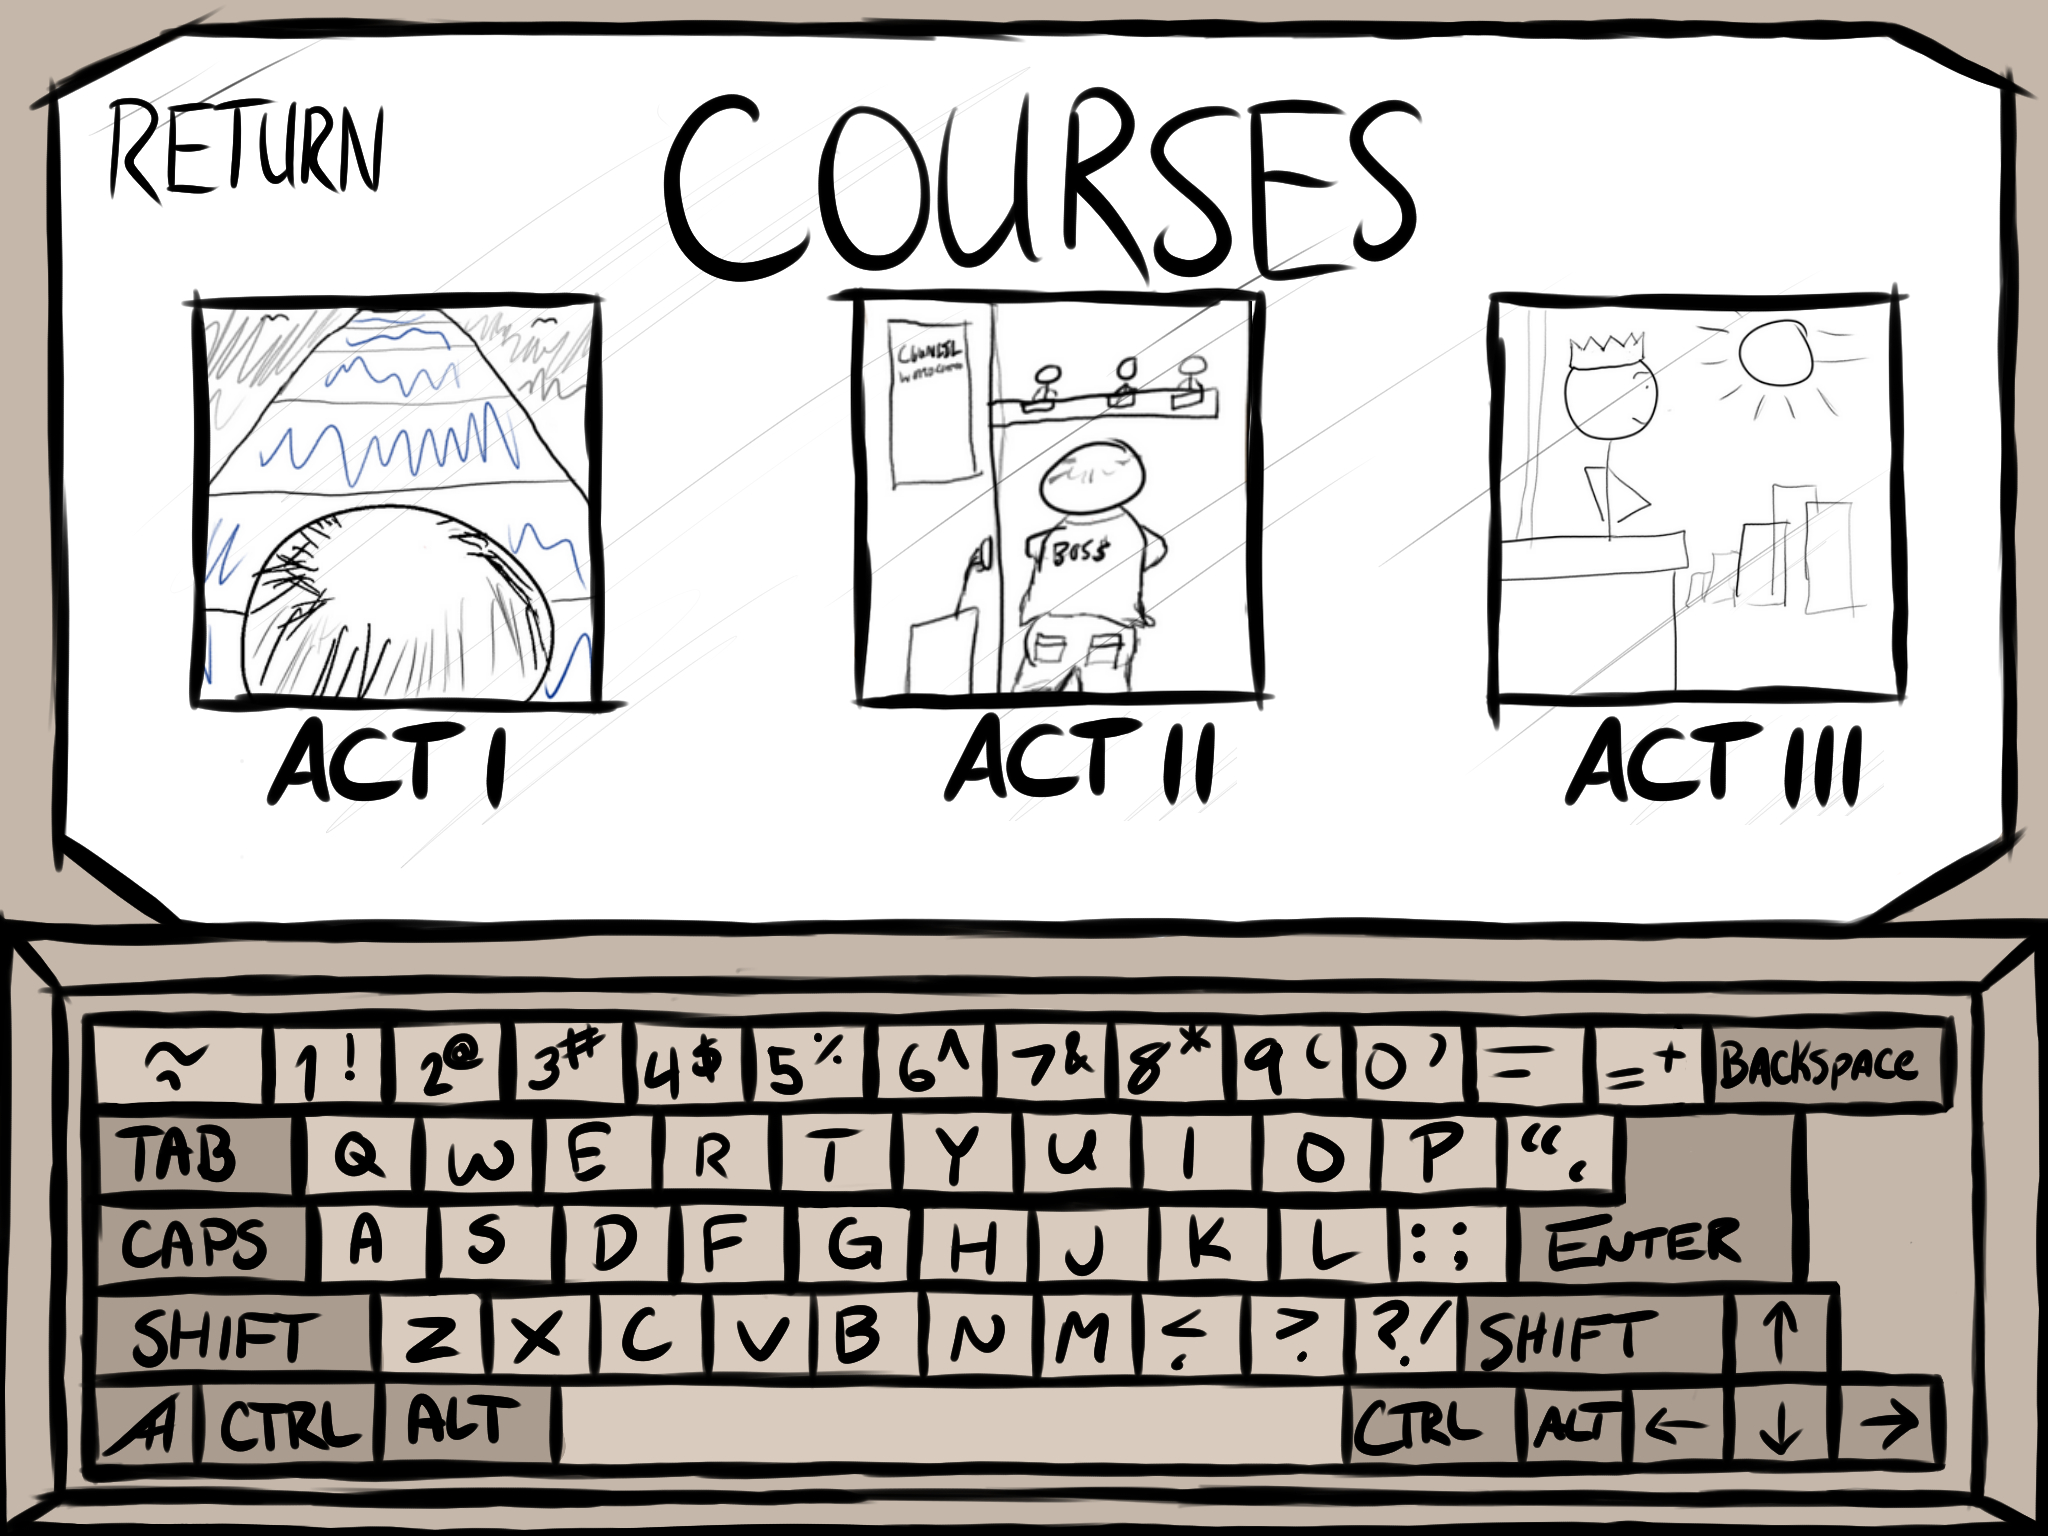 RETURN
COURSES
COUNCIL
BOSS
ACT I
ACT II
ACT III
~ 1! 2@ 3# 4$ 5% 6^ 7& 8* 9( 0) = =+ BACKSPACE
TAB Q W E R T Y U I O P “‘
CAPS A S D F G H J K L :; ENTER
SHIFT Z X C V B N M <, >. ?/ SHIFT ↑
A CTRL ALT CTRL ALT ← ↓ →